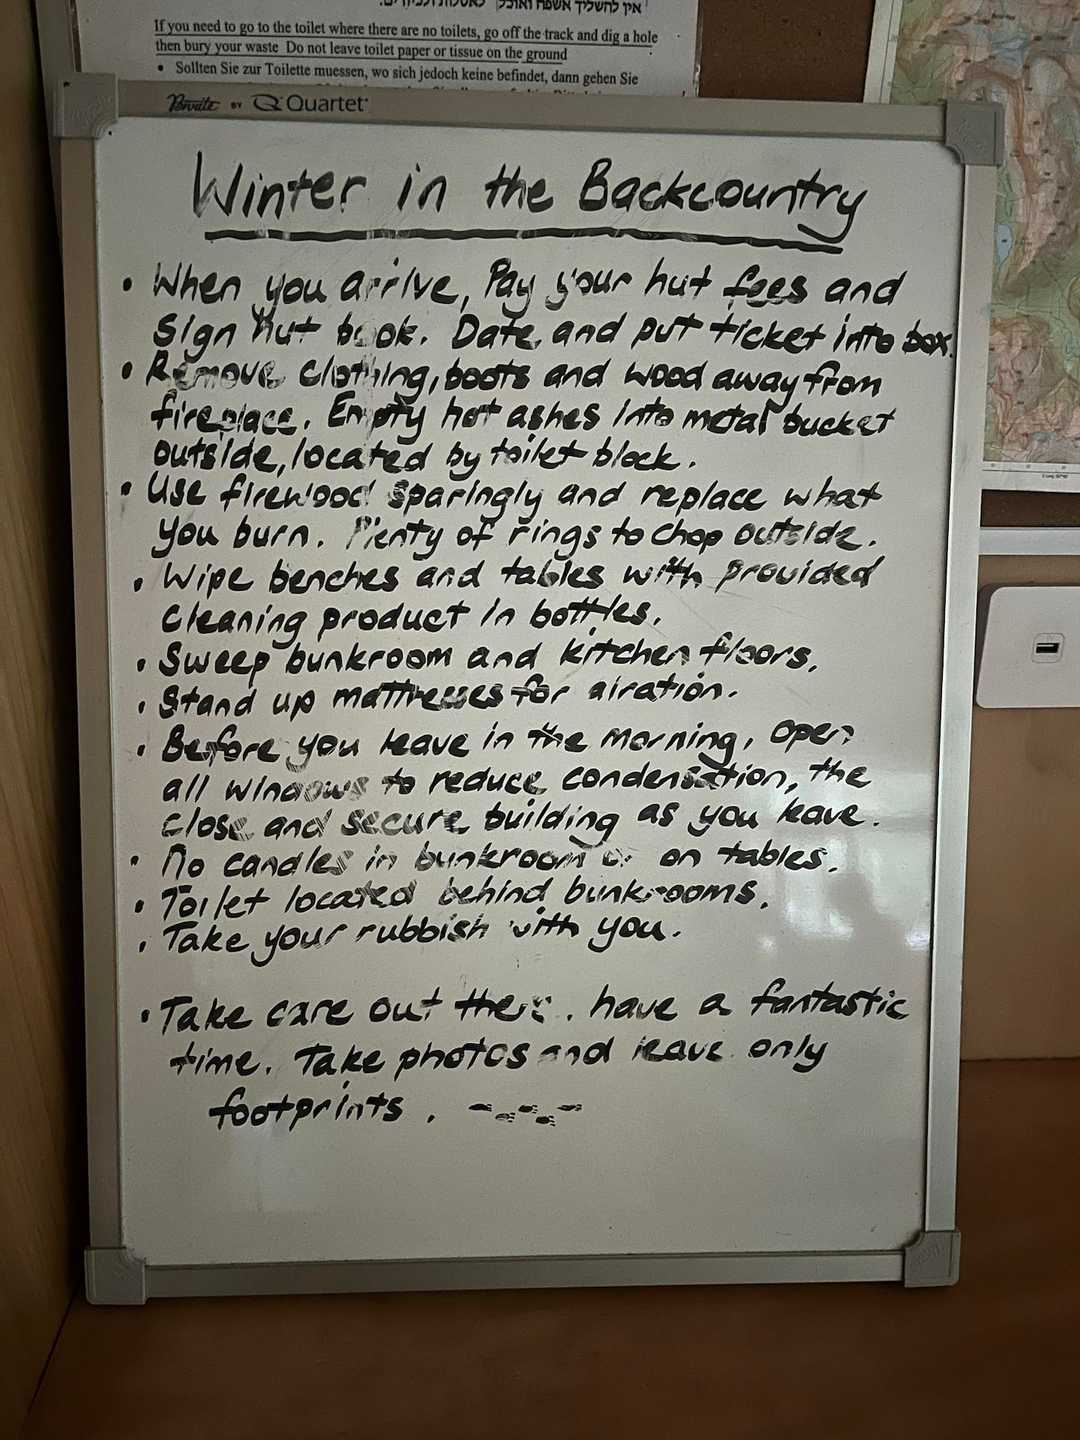 אין להשליך אשפה ואוכל
If you need to go to the toilet where there are no toilets, go off the track and dig a hole
then bury your waste Do not leave toilet paper or tissue on the ground
• Sollten Sie zur Toilette muessen, wo sich jedoch keine befindet, dann gehen Sie
BY Quartet
Winter in the Backcountry
• When you arrive, Pay your hut fees and
Sign Hut book. Date and put ticket into box.
• Remove clothing, boots and wood away from
fireplace. Empty hot ashes into metal bucket
outside, located by toilet block.
• Use firewood sparingly and replace what
you burn. Plenty of rings to chop outside.
• Wipe benches and tables with provided
cleaning product in bottles.
• Sweep bunkroom and kitchen floors.
• Stand up mattresses for airation.
• Before you leave in the morning, open
all windows to reduce condensation, the
close and secure building as you leave.
• No candles in bunkroom or on tables.
• Toilet located behind bunkrooms.
• Take your rubbish with you.
• Take care out there. have a fantastic
time. Take photos and leave only
footprints.